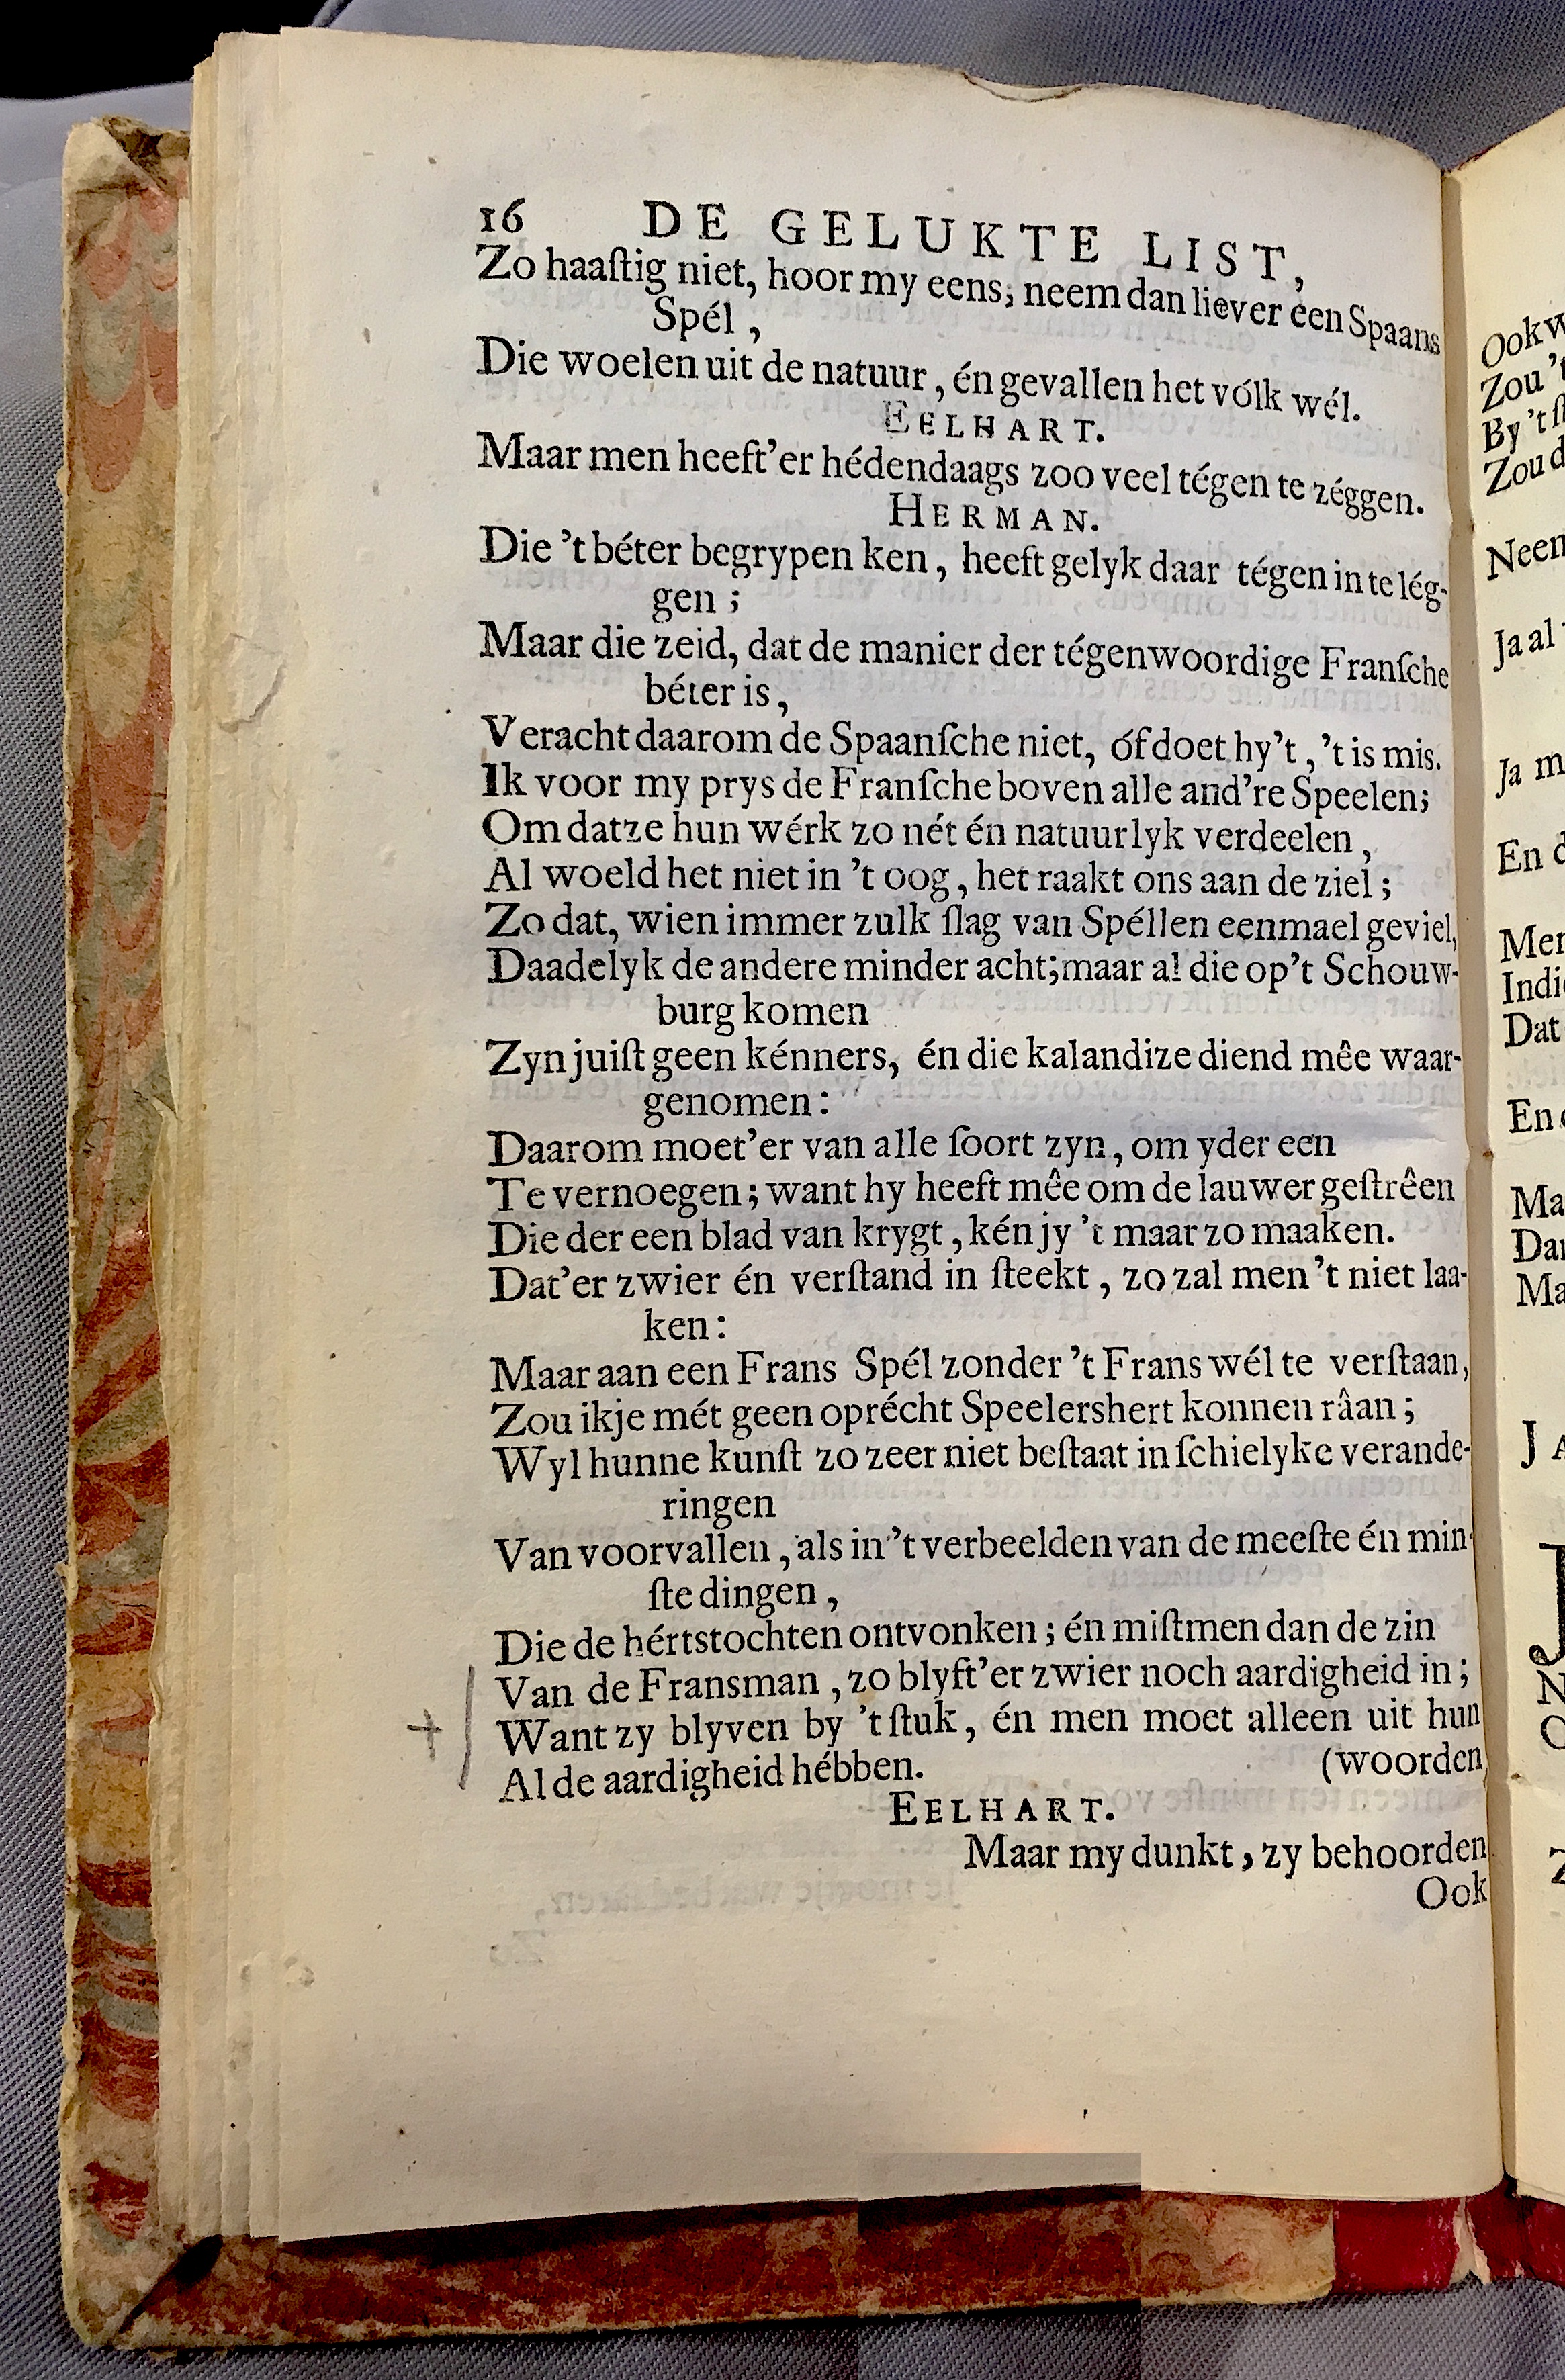 16 DE GELUKTE LIST,
Zo haaſtig niet, hoor my eens, neem dan liever een Spaans
Spél,
Die woelen uit de natuur, én gevallen het vólk wél.
EELHART.
Maar men heeft'er hédendaags zoo veel tégen te zéggen.
HERMAN.
Die 't béter begrypen ken, heeft gelyk daar tégen in te lég-
gen;
Maar die zeid, dat de manier der tégenwoordige Franſche
béter is,
Veracht daarom de Spaanſche niet, óf doet hy't, 't is mis.
Ik voor my prys de Franſche boven alle and're Speelen;
Om datze hun wérk zo nét én natuurlyk verdeelen,
Al woeld het niet in 't oog, het raakt ons aan de ziel;
Zo dat, wien immer zulk ſlag van Spéllen eenmael geviel,
Daadelyk de andere minder acht; maar al die op't Schouw-
burg komen
Zyn juiſt geen kénners, én die kalandize diend mêe waar-
genomen:
Daarom moet'er van alle ſoort zyn, om yder een
Te vernoegen; want hy heeft mêe om de lauwer geſtrêen
Die der een blad van krygt, kén jy 't maar zo maaken.
Dat'er zwier én verſtand in ſteekt, zo zal men 't niet laa-
ken:
Maar aan een Frans Spél zonder 't Frans wél te verſtaan,
Zou ik je mét geen oprécht Speelershert konnen râan;
Wyl hunne kunſt zo zeer niet beſtaat in ſchielyke verande-
ringen
Van voorvallen, als in 't verbeelden van de meeſte én min-
ſte dingen,
Die de hértstochten ontvonken; én miſt men dan de zin
Van de Fransman, zo blyft'er zwier noch aardigheid in;
Want zy blyven by 't ſtuk, én men moet alleen uit hun
Al de aardigheid hébben. (woorden
EELHART.
Maar my dunkt, zy behoorden
Ook
Ook
Zou 't
By 't
Zou
Neen
Ja al
Ja
En
Men
Indi
Dat
En
Ma
Dan
Ma